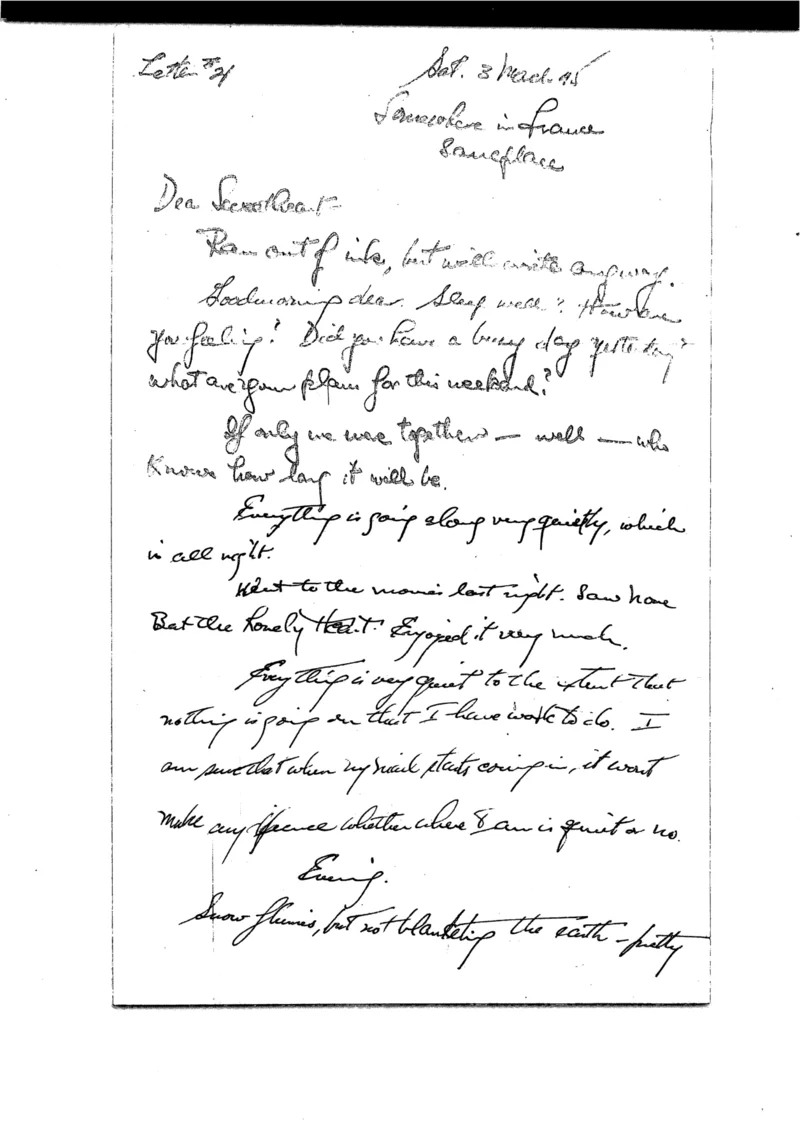 Letter #21
Sat. 3 March 45
Somewhere in France
Someplace
Dear Sweetheart -
Ran out of ink, but will write anyway.
Goodmorning dear. Sleep well? How are
you feeling? Did you have a busy day yesterday?
What are your plans for this weekend?
If only we were together — well — who
knows how long it will be.
Everything is going along very quietly, which
is all right.
Went to the movies last night. Saw None
But the Lonely Heart. Enjoyed it very much.
Everything is very quiet to the extent that
nothing is going on that I have work to do. I
am sure that when my mail starts coming in, it wont
make any difference whether where I am is quiet or no.
Evening.
Snow flurries, but not blanketing the earth - pretty